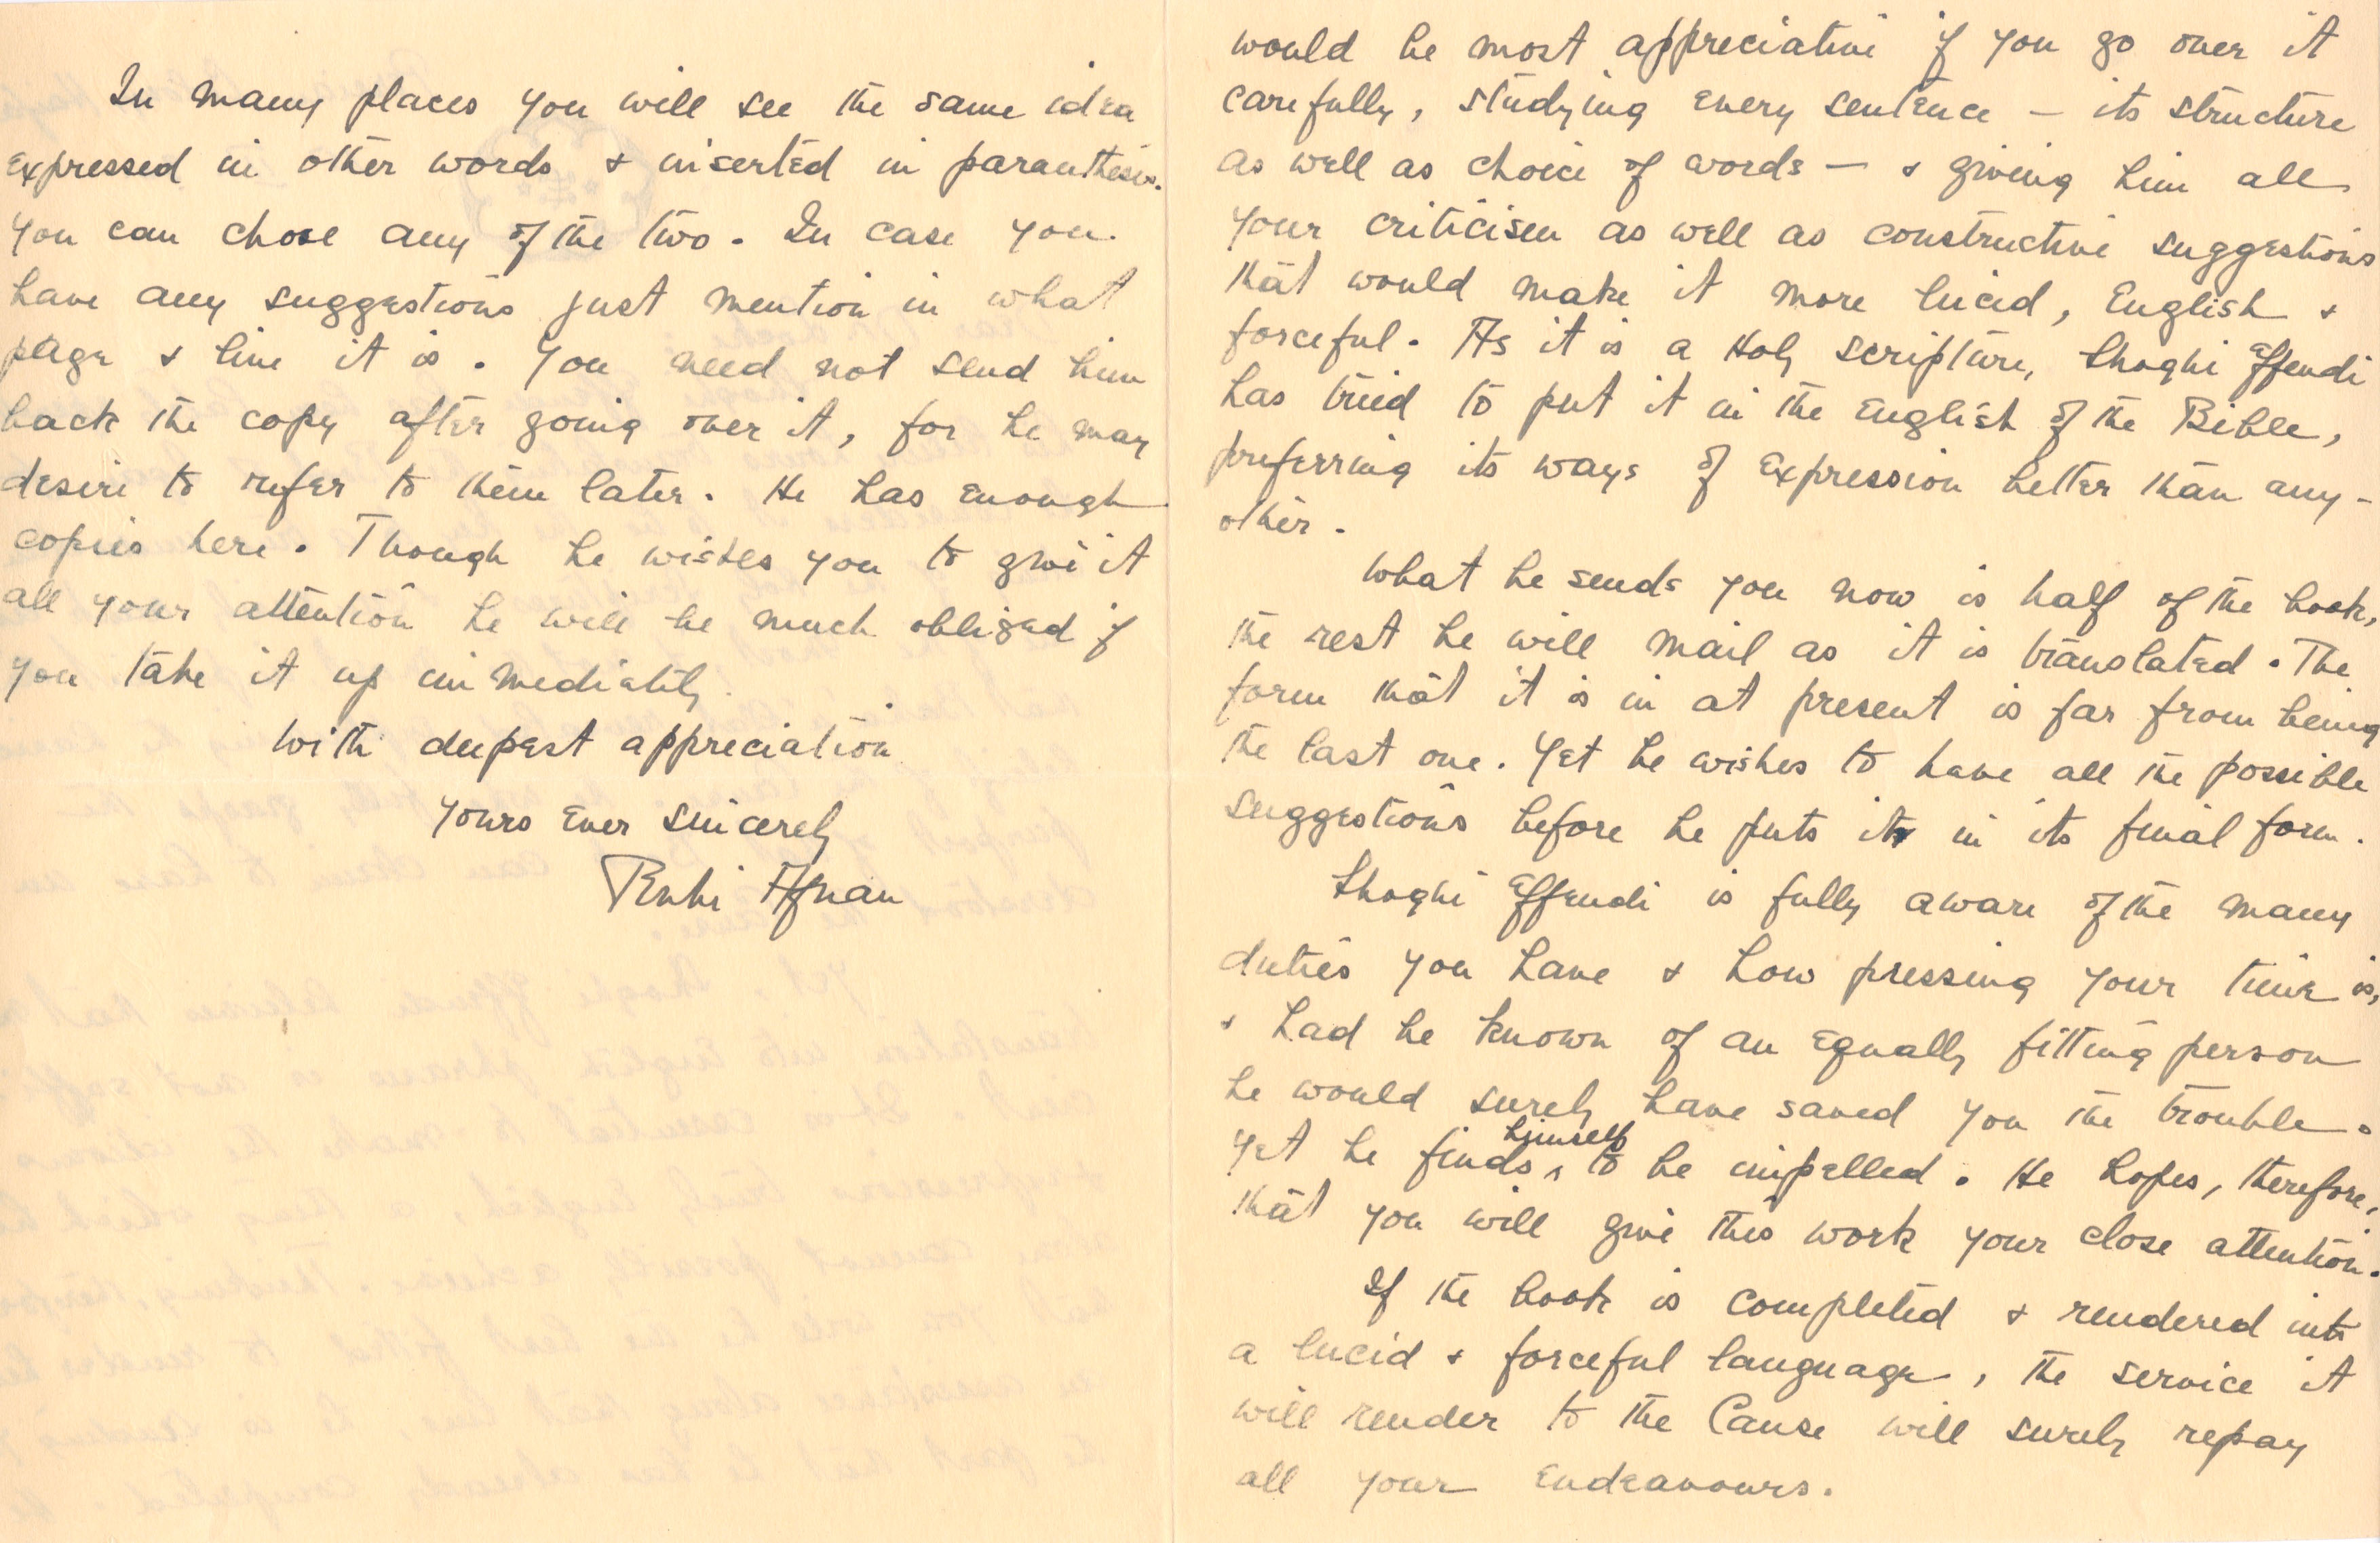 would be most appreciative if you go over it
carefully, studying every sentence – its structure
as well as choice of words — & giving him all
your criticism as well as constructive suggestions
that would make it more lucid, English &
forceful. As it is a Holy scripture, Shoghi Effendi
has tried to put it in the English of the Bible,
preferring its ways of expression better than any-
other.
What he sends you now is half of the book,
the rest he will mail as it is translated. The
form that it is in at present is far from being
the last one. Yet he wishes to have all the possible
suggestions before he puts it in its final form.
Shoghi Effendi is fully aware of the many
duties you have & how pressing your time is,
& had he known of an equally fitting person
he would surely have saved you the trouble.
Yet he finds himself to be impelled. He hopes, therefore,
that you will give this work your close attention.
If the book is completed & rendered into
a lucid & forceful language, the service it
will render to the Cause will surely repay
all your endeavours.
In many places you will see the same idea
expressed in other words & inserted in paranthesis.
You can chose any of the two. In case you
have any suggestions just mention in what
page & line it is. You need not send him
back the copy after going over it, for he may
desire to refer to them later. He has enough
copies here. Though he wishes you to give it
all your attention he will be much obliged if
you take it up immediately.
With deepest appreciation
Yours ever sincerely
Ruhi Afnan